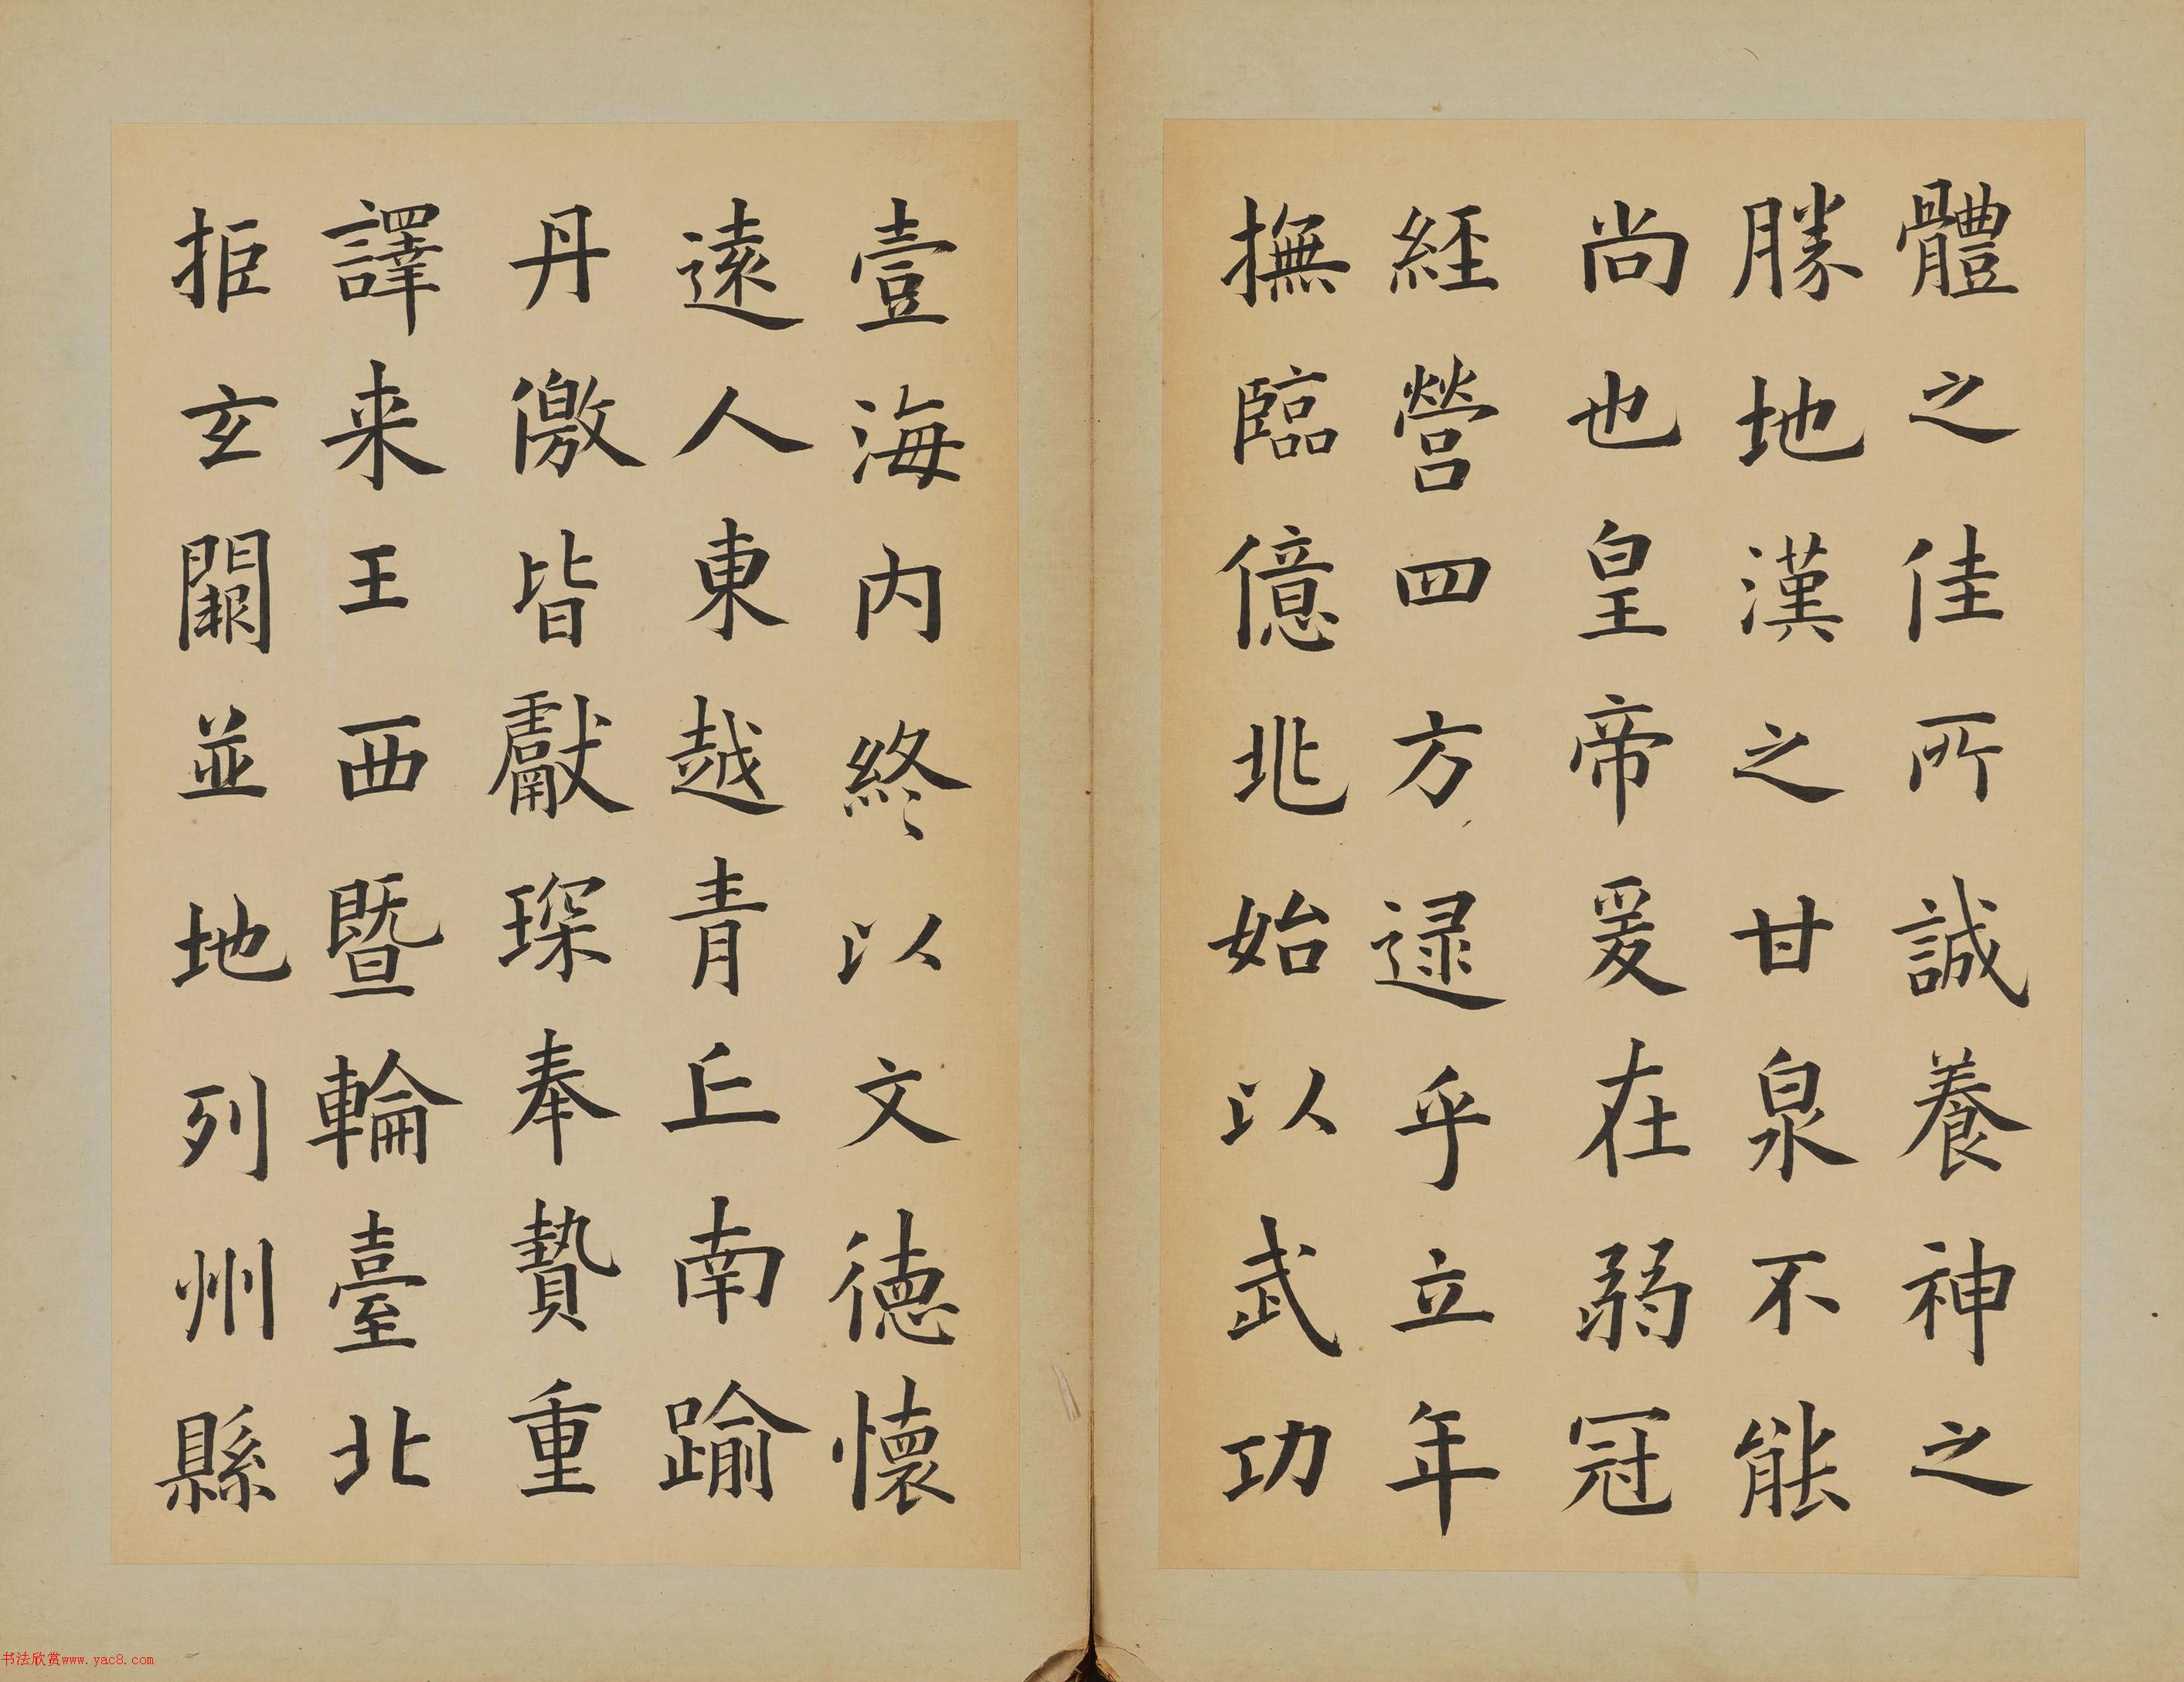 體之佳所誠養神之
勝地漢之甘泉不能
尚也皇帝爰在弱冠
經營四方逯乎立年
撫臨億兆始以武功
壹海內終以文德懷
遠人東越青丘南踰
丹儌皆獻琛奉贄重
譯来王西暨輪臺北
拒玄闕並地列州縣
书法欣赏www.yac8.com